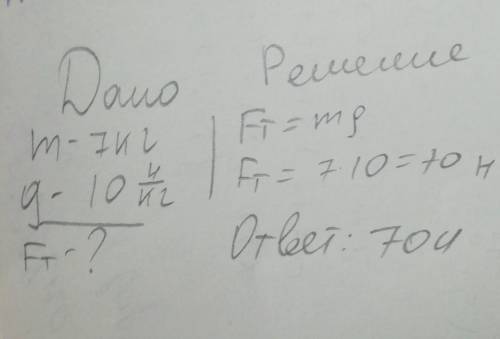 Дано
m - 7 кг
g - 10 н/кг
Fт - ?
Решение
Fт = mg
Fт = 7·10 = 70 н
Ответ: 70н